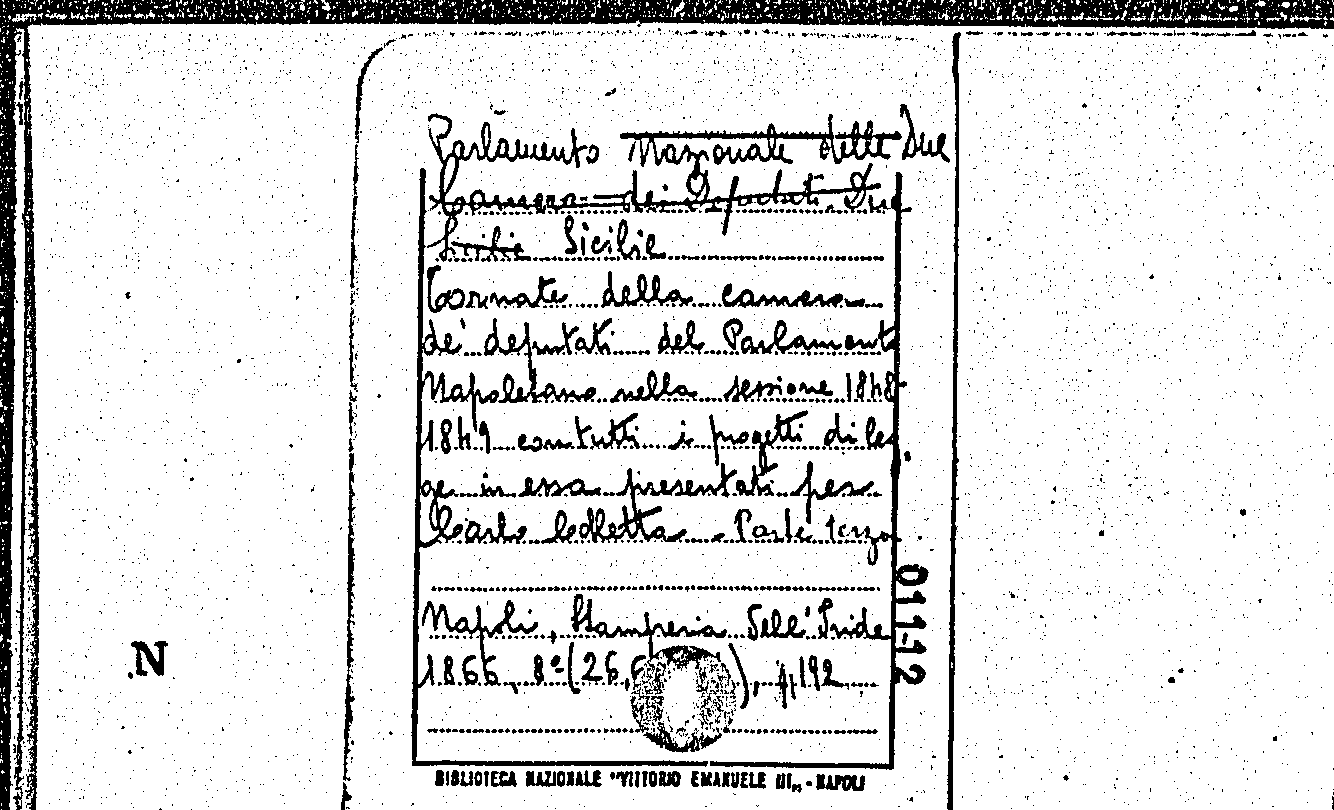 Parlamento Nazionale delle Due
Camera dei Deputati. Due
Sicilie Sicilie
Tornate della camera
de' deputati del Parlamento
Napoletano nella sessione 1848-
1849 con tutti i progetti di leg
ge in essa presentati per
Carlo Colletta. Parte terza
Napoli, Stamperia dell'Iride
1866, 8º (26,6 ), 192
BIBLIOTECA NAZIONALE "VITTORIO EMANUELE III„ - NAPOLI
01112
N